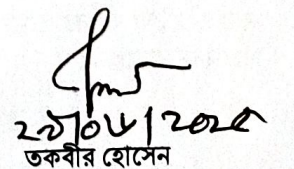 ২৯|০৬|২০২৫
তকবীর হোসেন